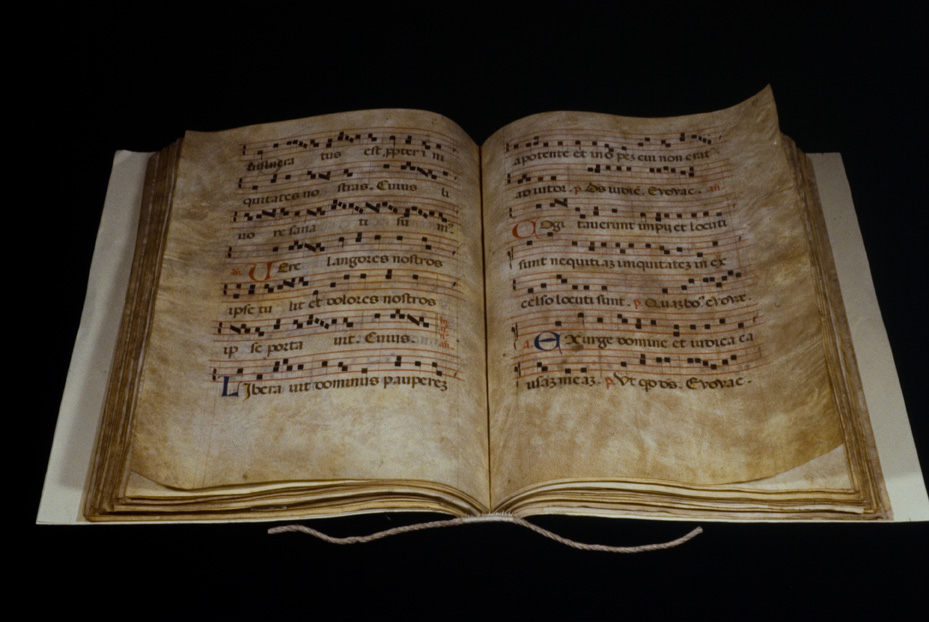 tus est ppter i ni
quitates no stras. Cuius li
uo re sana ti su mꝰ
Uere langores nostros
ipse tu lit et dolores nostros
ip se porta uit. Cuius.
Libera uit dominus pauperez
a potente et inopez cui non erat
adiutor. p. Ds iudic. Evovac. an.
Cogi tauerunt impij et locuti
sunt nequitiaz iniquitatez in ex
celso locuti sunt. p Evovae.
a. Exurge domine et iudica ca
usaz meaz. p. Vt qd ds. Evovac.